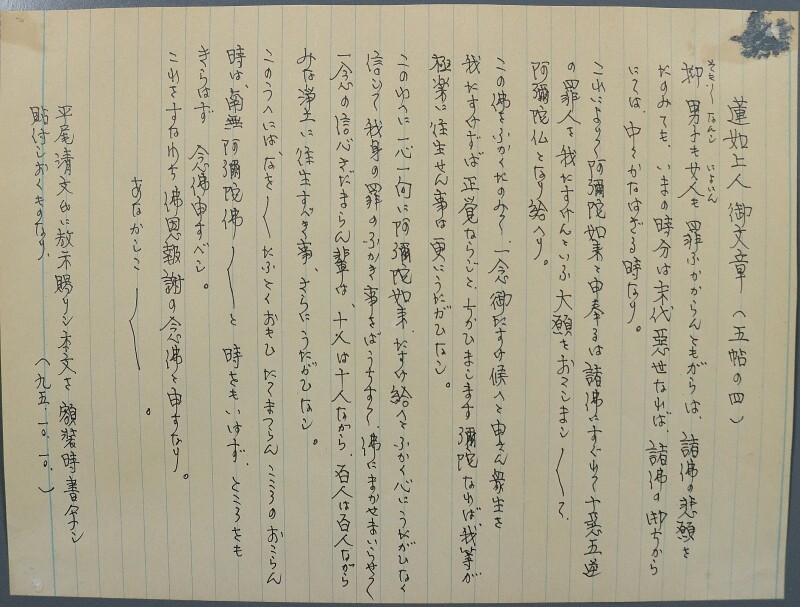 蓮如上人 御文章 (五帖の四)
そもそも なんし にょにん
抑 男子も女人も 罪ふかからんともがらは、諸佛の悲願を
たのみても、いまの時分は末代悪世なれば、諸佛の御ちから
にては、中々かなはざる時なり。
これによりて阿彌陀如来と申奉るは諸佛にすぐれて十悪五逆
の罪人を我たすけんといふ大願をおこしましまして、
阿彌陀仏となり給へり。
この佛をふかくたのみて、一念御たすけ候へと申さん衆生を
我たすけずば正覚ならじと、ちかひまします彌陀なれば、我等が
極楽に往生せん事は更にうたがひなし。
このゆへに一心一向に阿彌陀如来、たすけ給へとふかく心にうたがひなく
信じて我身の罪のふかき事をばうちすて、佛にまかせまいらせて
一念の信心さだまらん輩は、十人は十人ながら、百人は百人ながら
みな浄土に往生すべき事、さらにうたがひなし。
このうへには、なをなをたふとくおもひたてまつらんこころのおこらん
時は、南無阿彌陀佛〱と 時をもいはず、ところをも
きらはず 念佛申すべし。
これをすなわち佛恩報謝の念佛と申すなり。
あなかしこ〱。
平尾清文氏に教示賜りし本文を 額装時書写し
貼付しおくものなり、 (九五.一〇.一〇.)